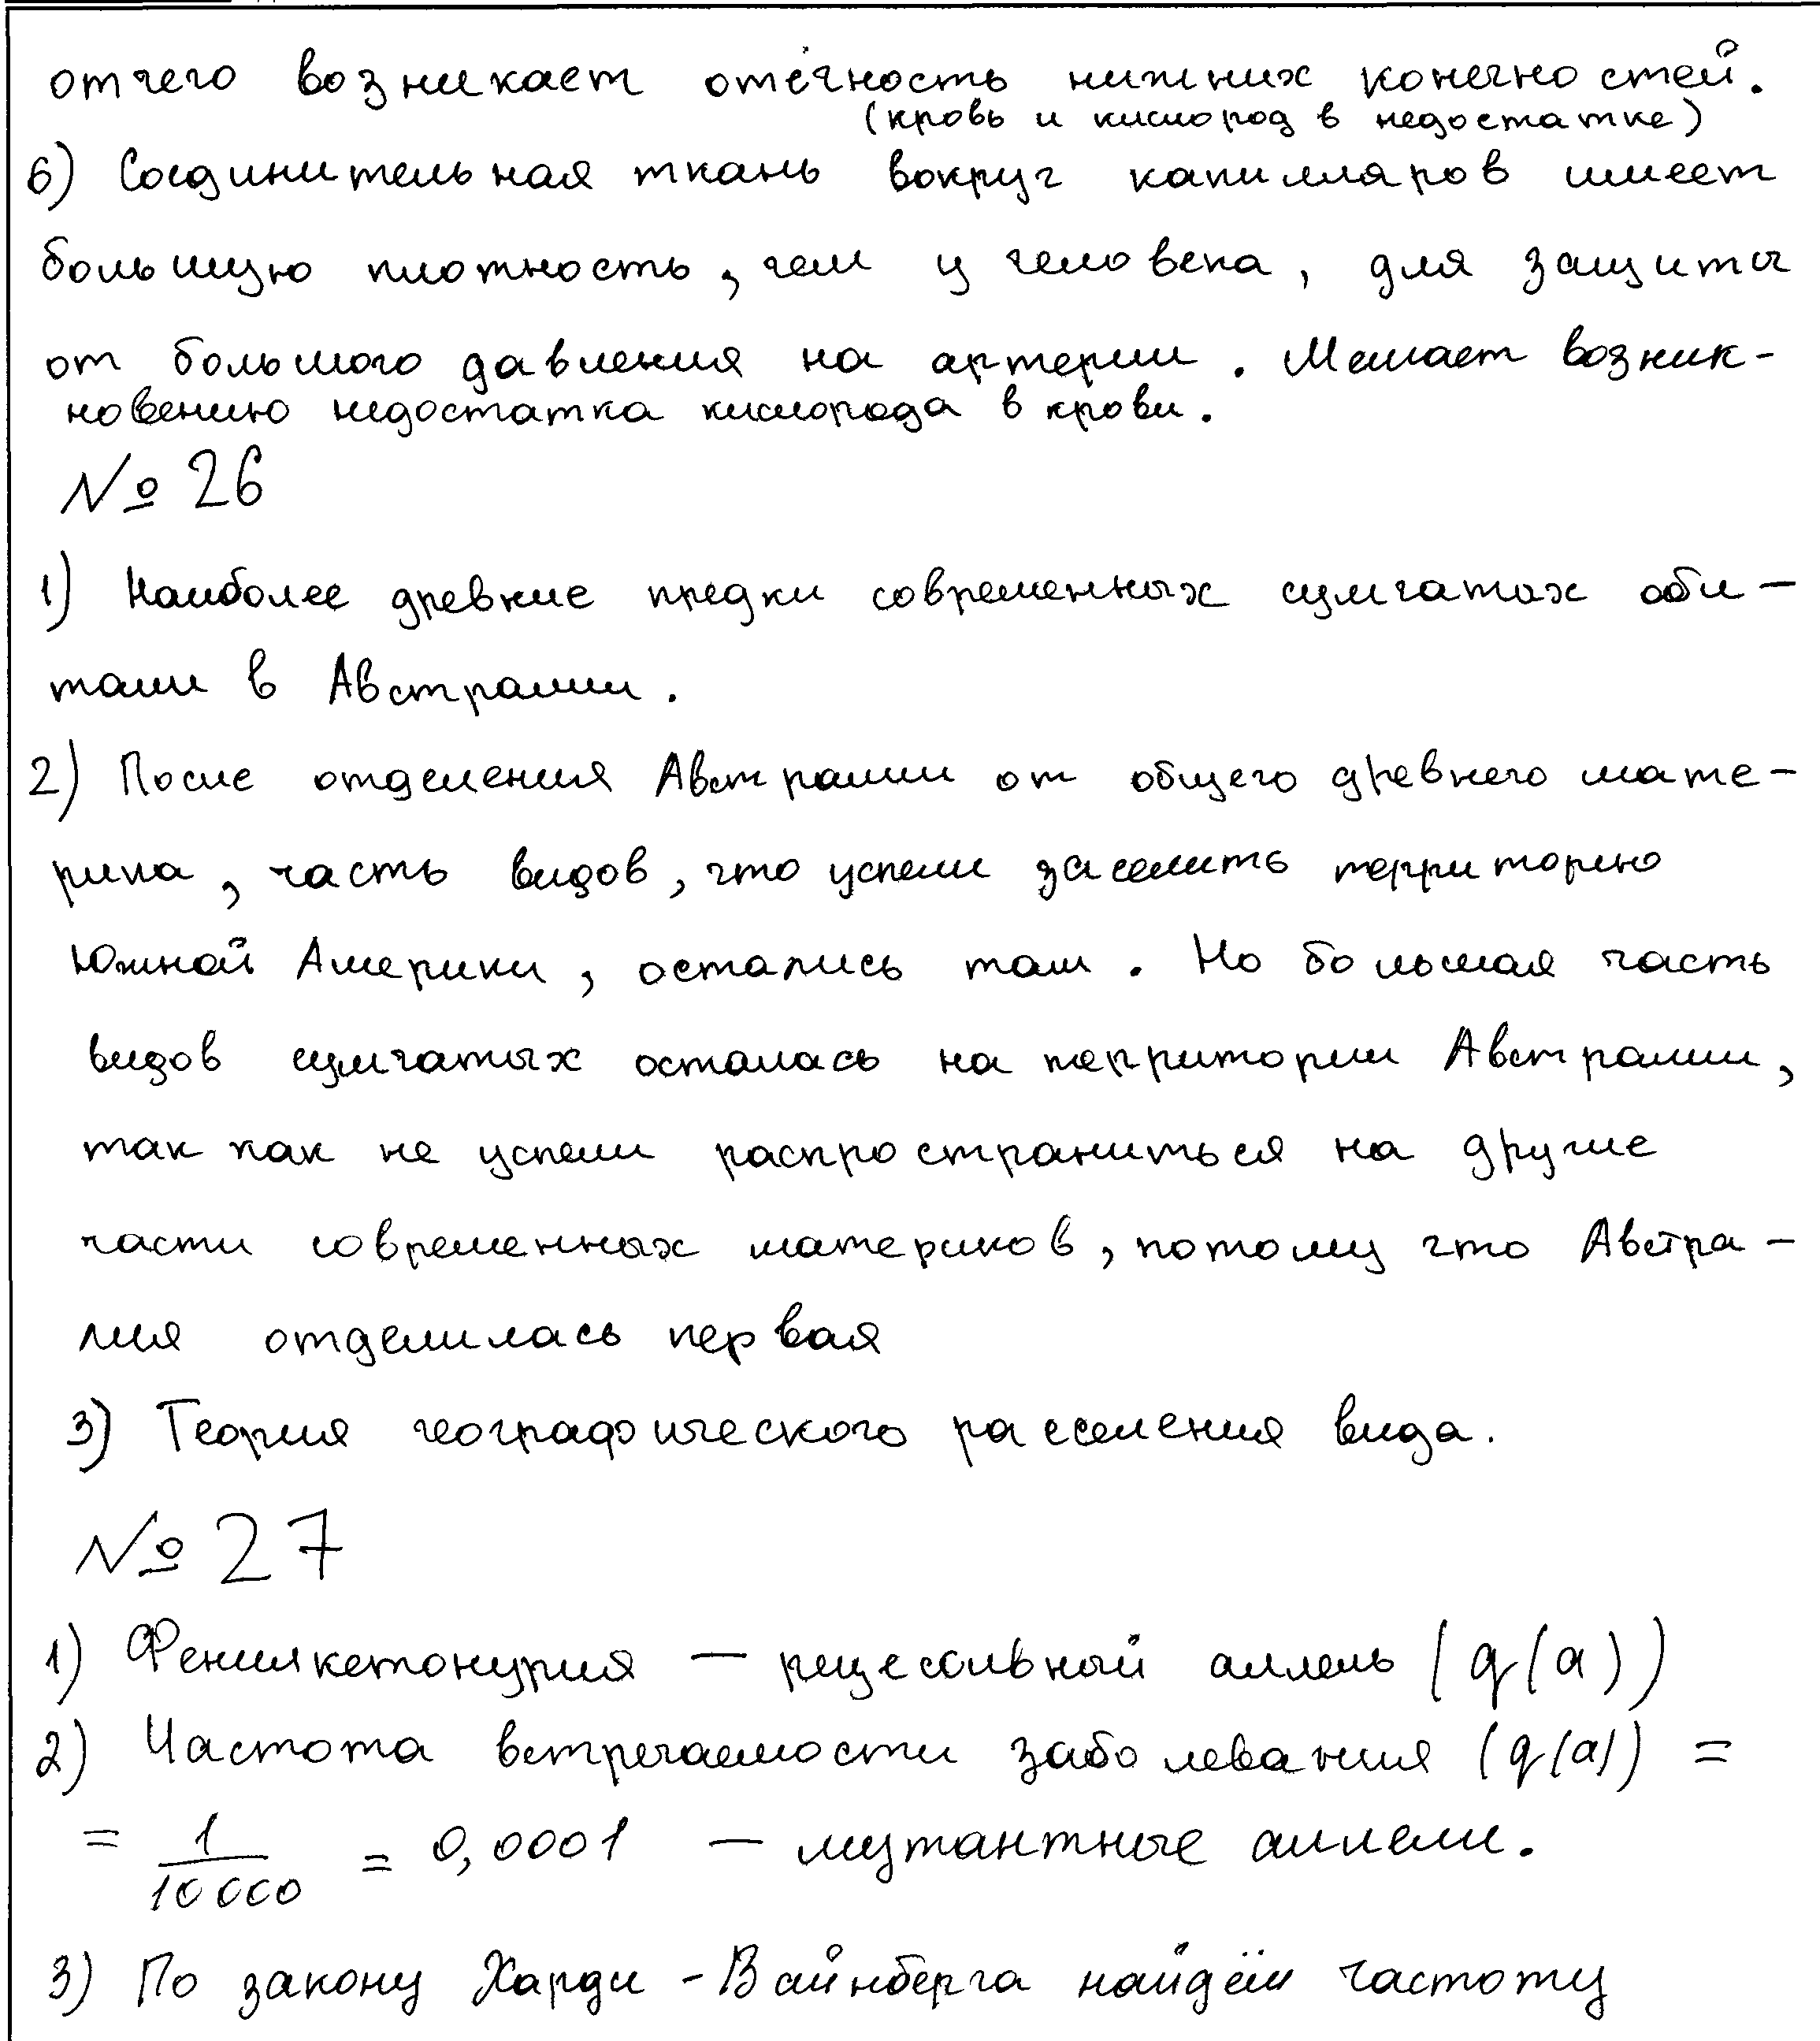 отчего возникает отёчность нижних конечностей.
(кровь и кислород в недостатке)
6) Соединительная ткань вокруг капилляров имеет
большую плотность, чем у человека, для защиты
от большого давления на артерии. Мешает возник-
новению недостатка кислорода в крови.
№ 26
1) Наиболее древние предки современных сумчатых оби-
тали в Австралии.
2) После отделения Австралии от общего древнего мате-
рика, часть видов, что успели заселить территорию
Южной Америки, остались там. Но большая часть
видов сумчатых осталась на территории Австралии,
так как не успели распространиться на другие
части современных материков, потому что Австра-
лия отделилась первая
3) Теория географического расселения вида.
№ 27
1) Фенилкетонурия — рецессивный аллель (q(a))
2) Частота встречаемости заболевания (q(a)) =
= 1/10000 = 0,0001 — мутантные аллели.
3) По закону Харди-Вайнберга найдём частоту